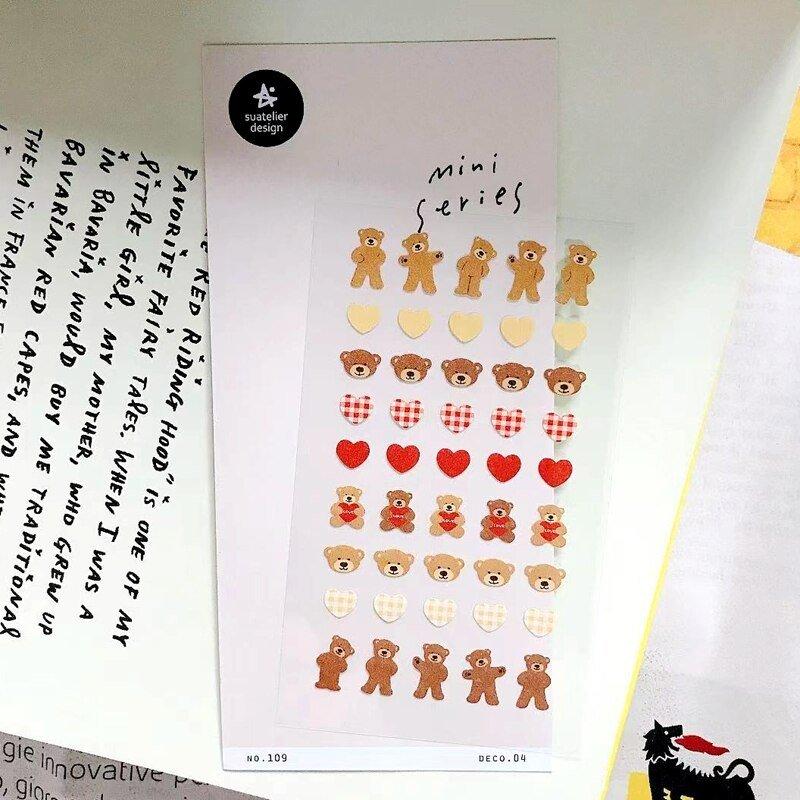 suatelier
design
mini
series
RED RIDING HOOD" IS ONE OF MY
FAVORITE FAIRY TALES. WHEN I WAS A
LITTLE GIRL, MY MOTHER, WHO GREW UP
IN BAVARIA, WOULD BUY ME TRADITIONAL
BAVARIAN RED CAPES, AND
THEM IN FRANCE
NO.109
DECO.04
gie innovative